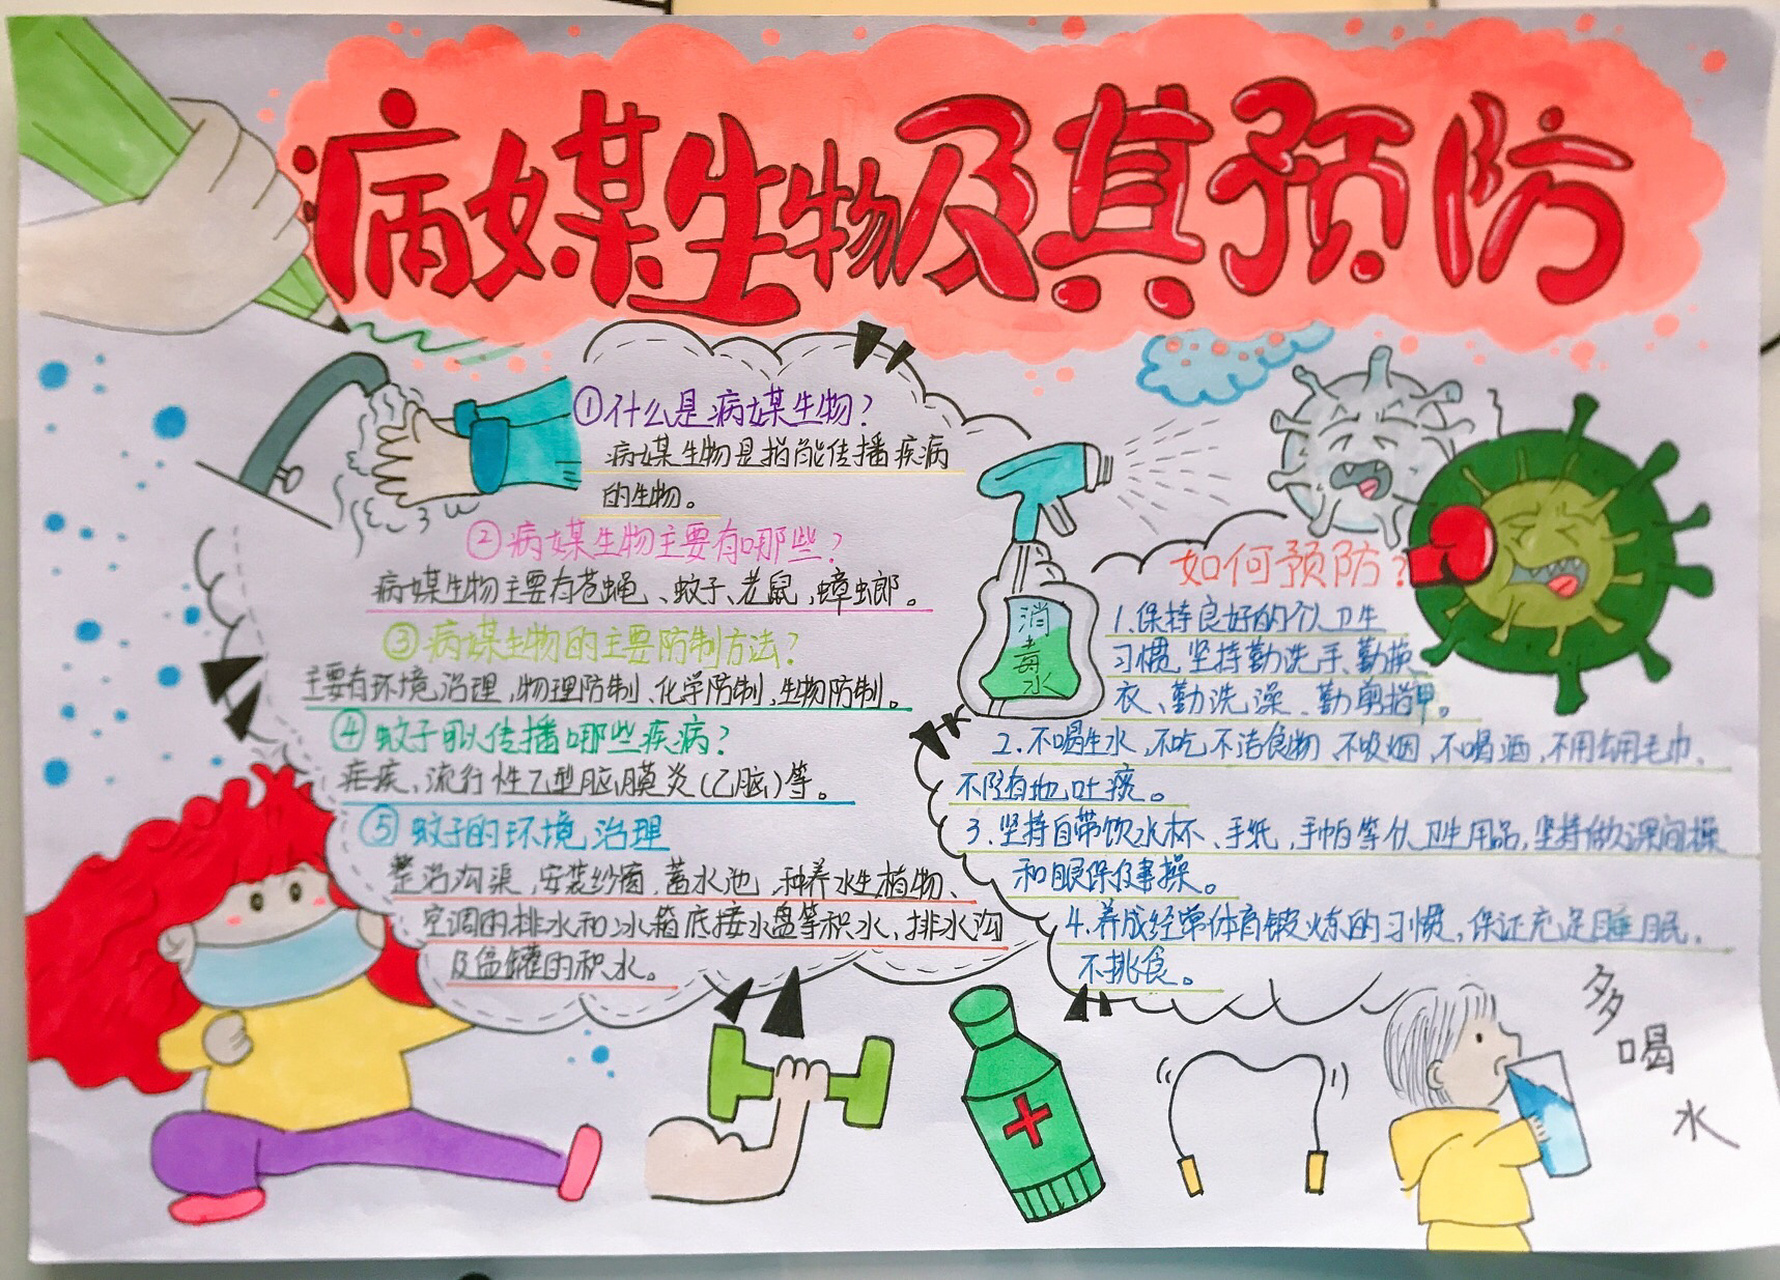 病媒生物及其预防
①什么是病媒生物?
病媒生物是指能传播疾病
的生物。
②病媒生物主要有哪些?
病媒生物主要有苍蝇、蚊子、老鼠,蟑螂。
③病媒生物的主要防制方法?
主要有环境治理,物理防制、化学防制,生物防制。
④蚊子可以传播哪些疾病?
疟疾、流行性乙型脑膜炎(乙脑)等。
⑤蚊子的环境治理
整治沟渠,安装纱窗,蓄水池,种养水生植物、
空调的排水和冰箱底接水盘等积水,排水沟
及盆罐的积水。
消
毒
水
如何预防?
1.保持良好的个人卫生
习惯,坚持勤洗手、勤换
衣、勤洗澡、勤剪指甲。
2.不喝生水,不吃不洁食物,不吸烟,不喝酒,不用公用毛巾、
不随地吐痰。
3.坚持自带饮水杯、手纸,手帕等个人卫生用品,坚持做好课间操
和眼保健操。
4.养成经常体育锻炼的习惯,保证充足睡眠,
不挑食。
多
喝
水